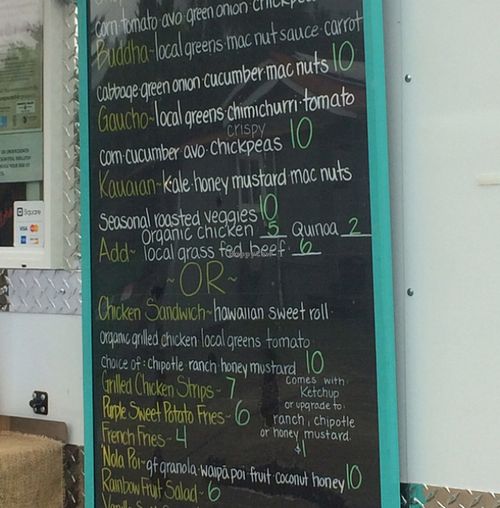 corn·tomato·avo·green onion·chickpeas
Buddha~local greens·mac nut sauce·carrot
cabbage·green onion·cucumber·mac nuts 10
Gaucho~local greens·chimichurri·tomato
crispy
corn·cucumber·avo·chickpeas 10
Kauaian~kale·honey mustard·mac nuts
seasonal roasted veggies 10
Add~ organic chicken 5 Quinoa 2
local grass fed beef 6
~OR~
Chicken Sandwich~hawaiian sweet roll·
organic grilled chicken·local greens·tomato·
choice of: chipotle·ranch·honey mustard 10
Grilled Chicken Strips~7
Purple Sweet Potato Fries~6
French Fries~4
comes with:
Ketchup
or upgrade to:
ranch, chipotle
or honey mustard.
$1
'Nola Poi~gf granola·waipā poi·fruit·coconut·honey 10
Rainbow Fruit Salad~6
Square
VISA